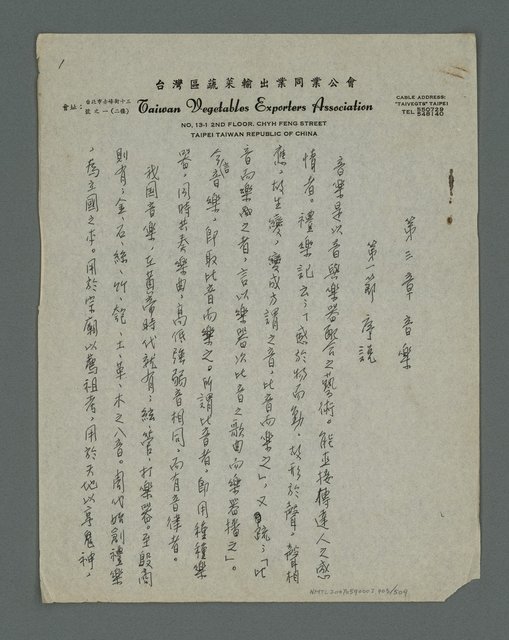 1
台灣區蔬菜輸出業同業公會
會址：台北市赤峰街十三號之一(二樓)
Taiwan Vegetables Exporters Association
CABLE ADDRESS:
"TAIVEGTS" TAIPEI
TEL. 550729
548140
NO. 13-1 2ND FLOOR, CHYH FENG STREET
TAIPEI TAIWAN REPUBLIC OF CHINA
第三章 音樂
第一節 序說
音樂是以音與樂器配合之藝術。能直接傳達人之感
情者。禮樂記云：「感於物而動，故形於聲，聲相
應，故生變，變成方謂之音，比音而樂之」，又疏：「比
音而樂之者，言以樂器次比音之歌曲而樂器播之」。
今言音樂，即取比音而樂之。所謂比音者，即用種種樂
器，同時共奏樂曲，高低強弱音相同，而有音律者。
我国音樂，在黃帝時代就有，絃管，打樂器。至殷商
則有，金、石、絲、竹、匏、土、革、木之八音。周代始創禮樂
，為立國之本。用於宗廟以薦祖者，用於天地以享鬼神，
NMTL20070590002 403/504